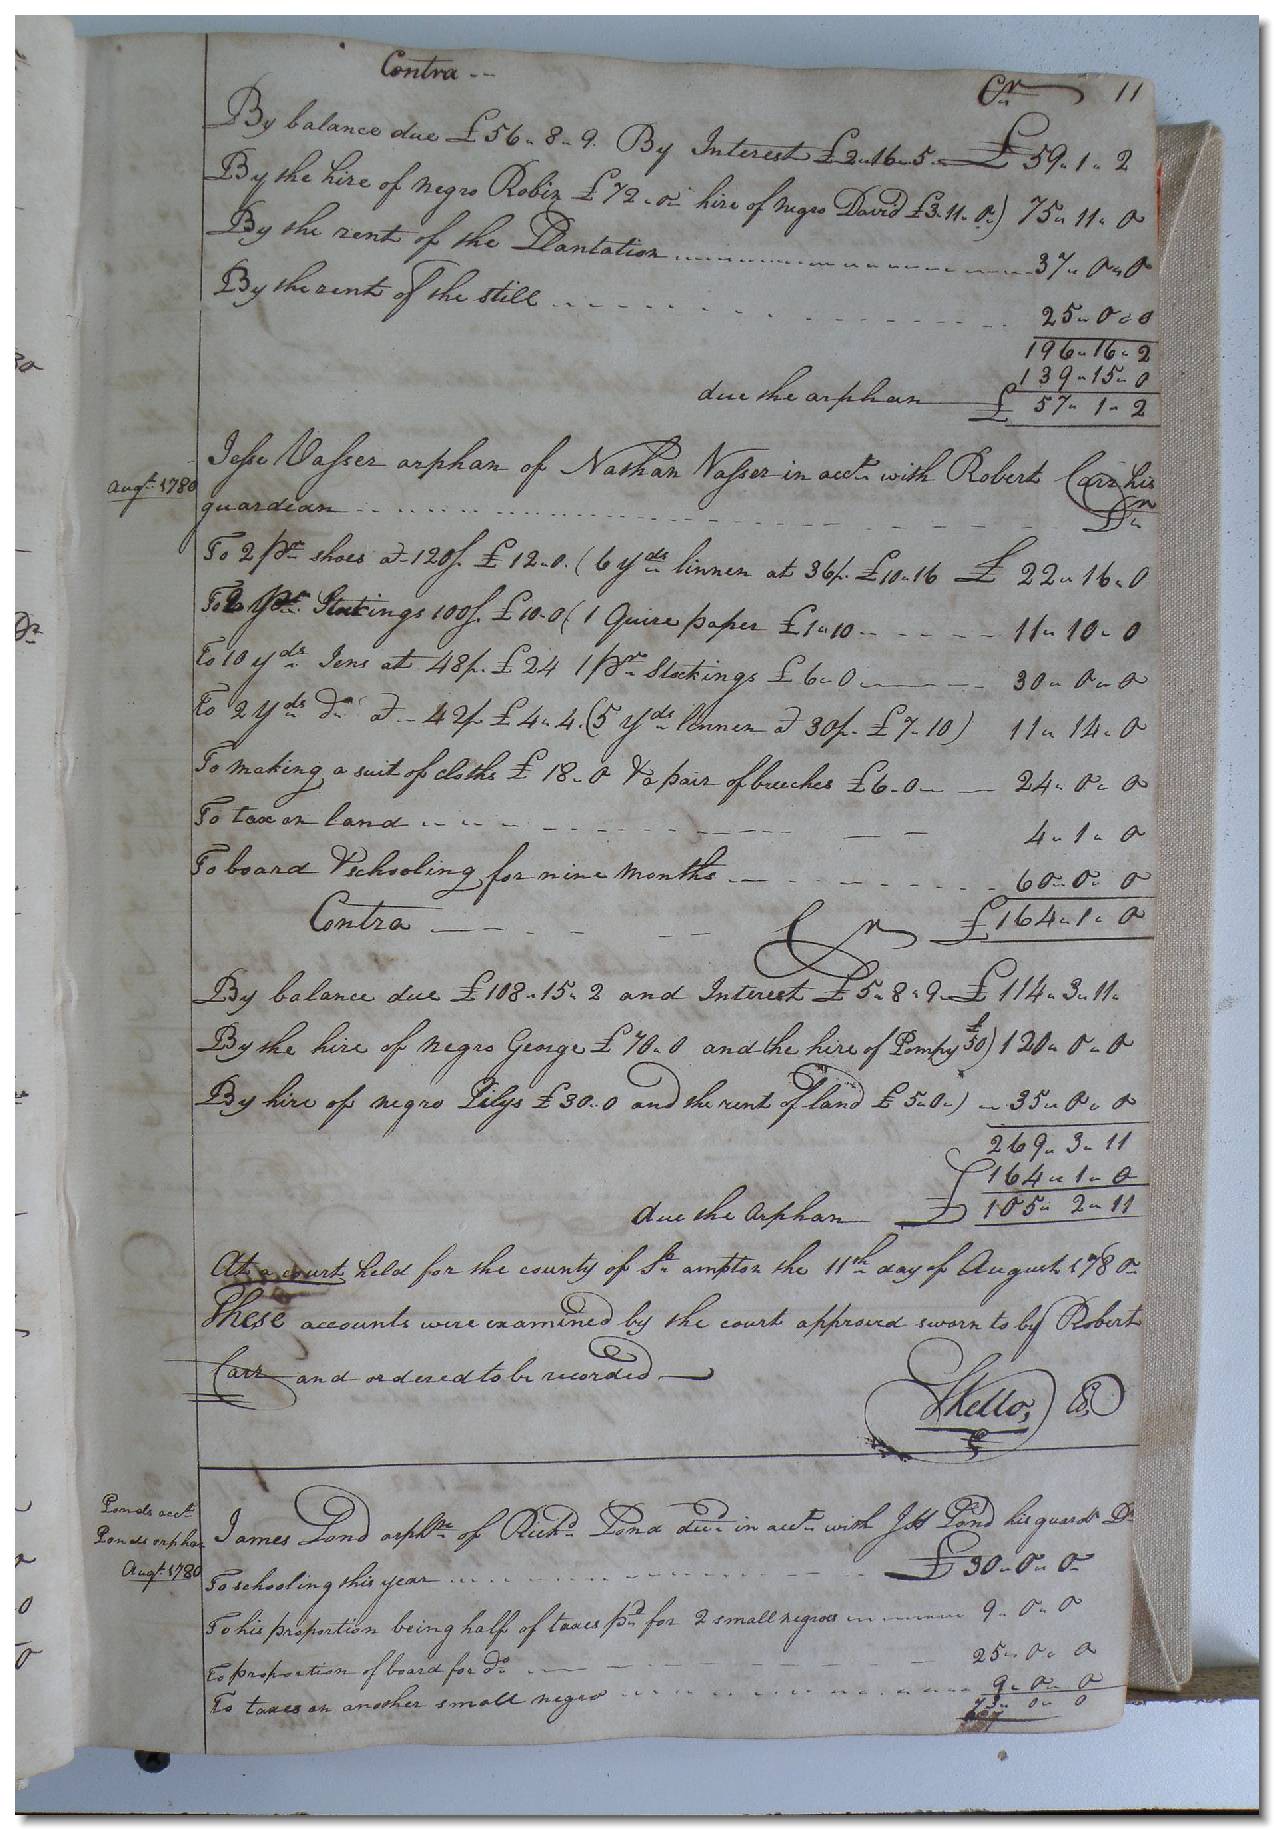 Contra -- Cr 11
By balance due £56..8..9. By Interest £2..16..5.. £59..1..2
By the hire of negro Robin £72..0.. hire of negro David £3..11..0..) 75..11..0
By the rent of the Plantation 37..0..0
By the rent of the still 25..0..0
196..16..2
139..15..0
due the orphan £ 57..1..2
Augt. 1780
Jesse Vasser orphan of Nathan Vasser in acct. with Robert Carr his
guardian Dr
To 2 pr shoes @ 120/. £12..0. (6 yds linnen at 36/. £10..16 £ 22..16..0
To 2 pr. Stockings 100/. £10..0 (1 Quire paper £1..10 11..10..0
To 10 yds Jens at 48/. £24 1 pr Stockings £6..0 30..0..0
To 2 yds do @ 42/ £4..4. (5 yds linnen @ 30/. £7..10) 11..14..0
To making a suit of cloths £18..0 & a pair of breeches £6..0 24..0..0
To tax on land 4..1..0
To board & schooling for nine months 60..0..0
£164..1..0
Contra Cr
By balance due £108..15..2 and Interest £5..8..9 £114..3..11.
By the hire of negro George £70..0 and the hire of Pompy £50) 120..0..0
By hire of negro Pilys £30..0 and the rent of land £5..0..) 35..0..0
269..3..11
£164..1..0
due the orphan £ 105..2..11
At a court held for the county of So ampton the 11th day of August 1780
These accounts were examined by the court approved sworn to by Robert
Carr and ordered to be recorded
SKello, CC
Ponds acct
Ponds orphan
Augt. 1780
James Pond orphn of Richd Pond decd in acct. with Jno Pond his guardn Dr
To schooling this year £30..0..0
To his proportion being half of taxes pd for 2 small negroes 9..0..0
To proportion of board for do 25..0..0
To taxes on another small negro 9..0..0
73..0..0